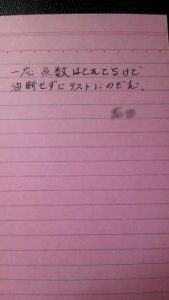 一応 点数はとれてるけど
油断せずにテストにのぞむ、